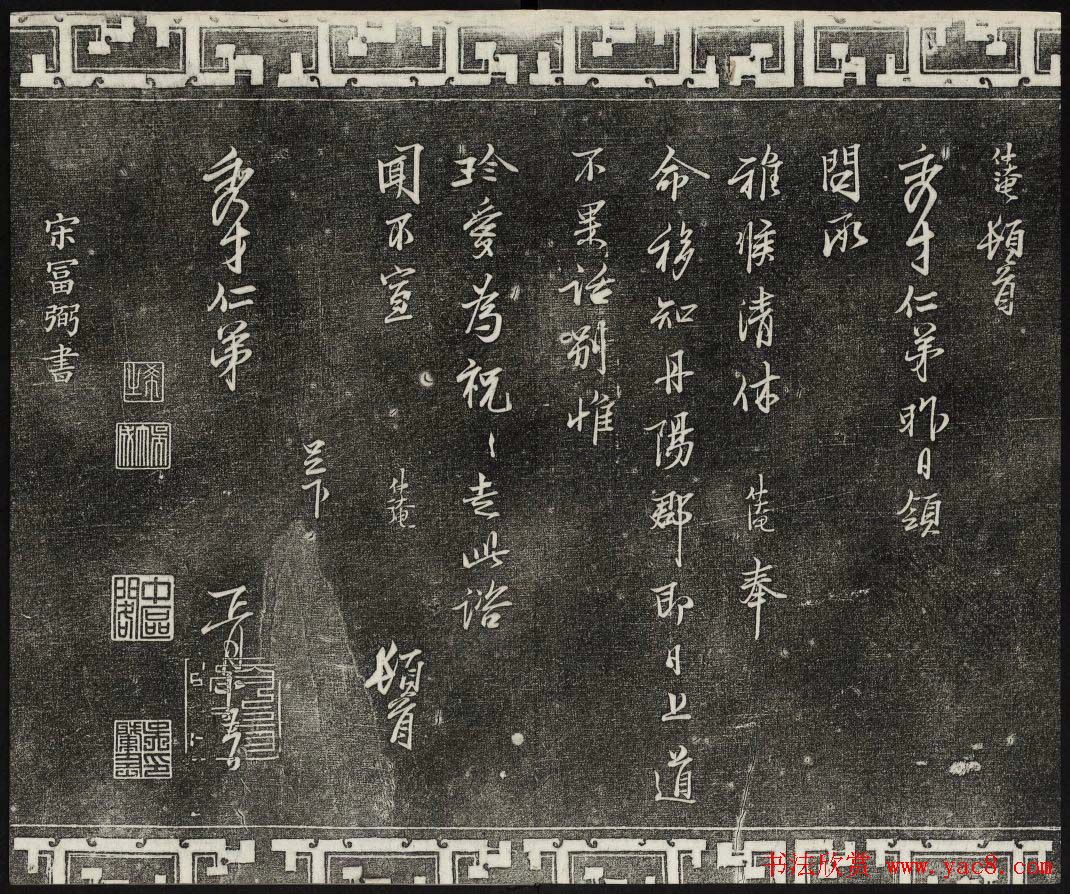 仕淹頓首
秀才仁弟昨日領
問承
雅候清休仕淹奉
命移知丹陽郡即日上道
不果話別惟
珍愛為祝〻走此諮
聞不宣仕淹頓首
秀才仁弟足下
宋富弼書
书法欣赏 www.yac8.com